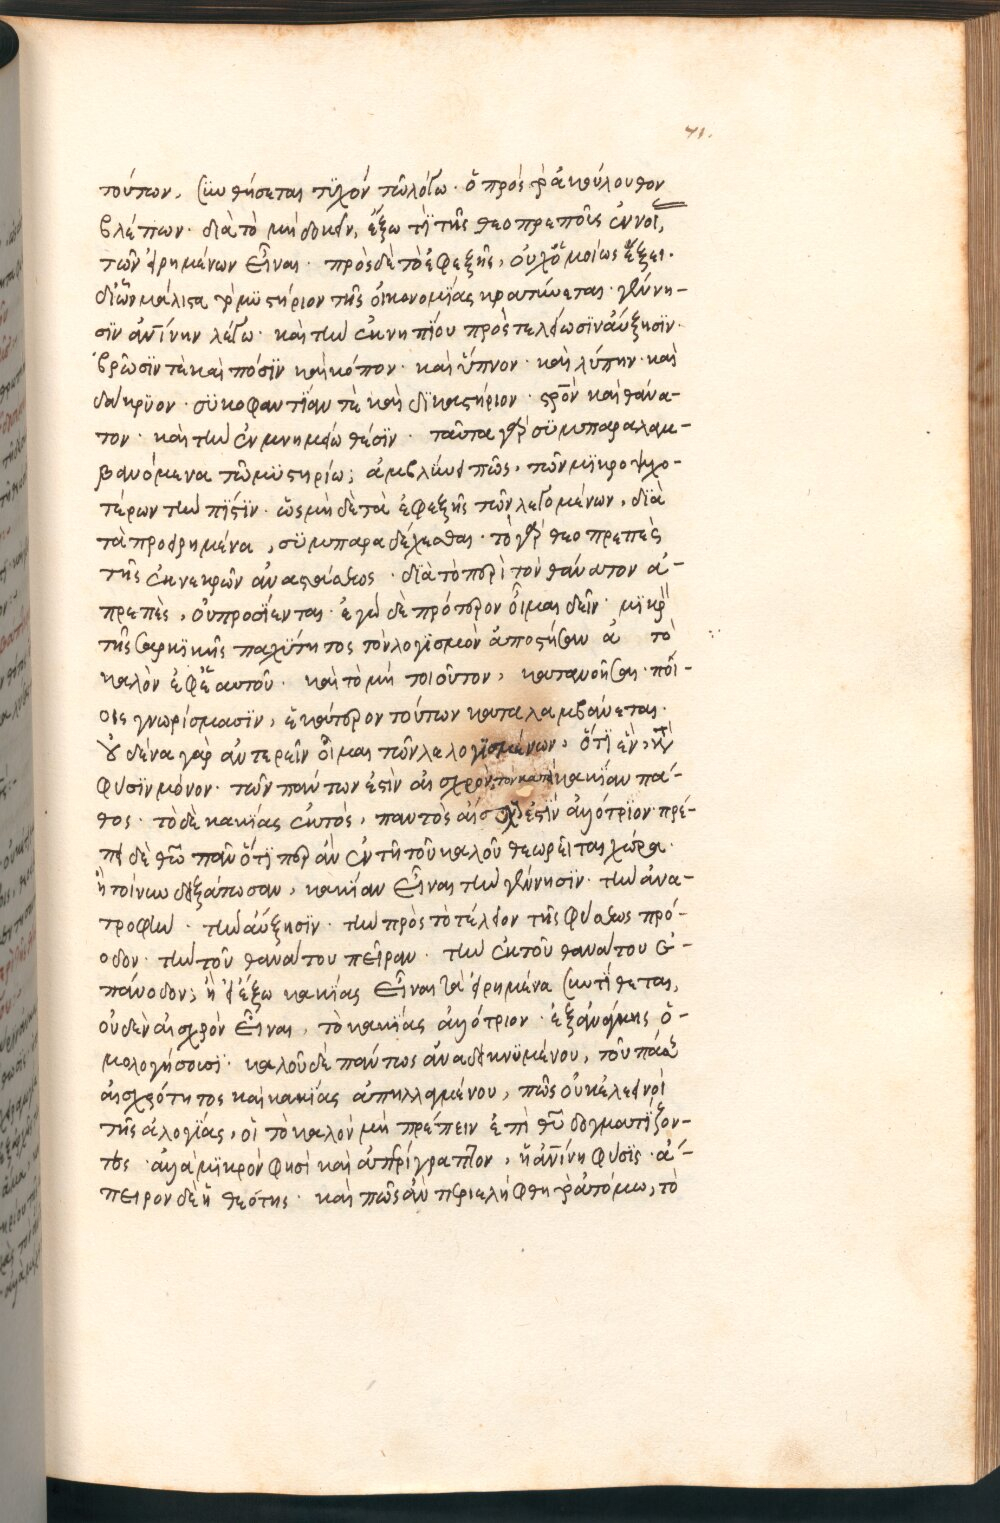 71.
τούτων, συνθήσεται τϋχὸν τῶ λόγω· ὁ πρὸς τὸ ἀκόλουθον
βλέπων· διὰ τὸ μὴ δοκεῖν, ἔξω τῒ τῆς θεοπρεποῦς ἐννοί,
τῶν εἰρημένων εἶναι· πρὸς δὲ τὸ ἐφεξῆς, οὐχ ὁμοίως ἕξει·
δι ὧν μάλιστα τὸ μϋστήριον τῆς οἰκονομίας κρατύνεται· γέννη-
σϊν ἀνίνην λέγω· καὶ τὴν ἐκ νηπΐου πρὸς τελείωσϊν αὔξησϊν·
βρῶσϊν τὲ καὶ πόσϊν καὶ κόπον· καὶ ὕπνον· καὶ λύπην· καὶ
δάκρϋον· σϋκοφαντΐαν τὲ καὶ δϊκαστήριον· στρὸν καὶ θάνα-
τον· καὶ τὴν ἐν μνημείω θέσϊν· ταῦτα γὰρ σϋμπαραλαμ-
βανόμενα τῶ μϋστηρίω, ἀμβλύνει πῶς, τῶν μϊκροψϋχο-
τέρων τὴν πΐστϊν· ὡς μὴ δὲ τὰ ἐφεξῆς τῶν λεγομένων, διὰ
τὰ προειρημένα, σϋμπαραδέχεσθαι· τὸ γὰρ θεοπρεπὲς
τῆς ἐκ νεκρῶν ἀναστάσεως· διὰ τὸ περὶ τὸν θάνατον ἀ-
πρεπὲς, οὐ προσίενται· ἐγὼ δὲ πρότερον οἶμαι δεῖν· μϊκρὸ
τῆς σαρκϊκῆς παχύτητος τὸν λογϊσμὸν ἀποστήσαν ἀ τὸ
καλὸν ἐφ ἑαυτοῦ· καὶ τὸ μὴ τοιοῦτον, κατανοῆσαι· ποί-
οις γνωρίσμασϊν, ἑκάτερον τούτων καταλαμβάνεται·
οὐδένα γὰρ ἀντερεῖν οἶμαι τῶν λελογϊσμένων, ὅτϊ ἓν κατὰ
φύσϊν μόνον· τῶν πάντων ἐστὶν αἰσχρὸν, τὸ κατὰ κακΐαν πά-
θος· τὸ δὲ κακίας ἐκτὸς, παντὸς αἴσχους ἐστὶν ἀλλότρϊον· πρέ-
πει δὲ θῶ πᾶν ὅτϊ περ ἂν ἐν τῆ τοῦ καλοῦ θεωρεῖται χώρα·
ἢ τοίνυν δειξάτωσαν, κακίαν εἶναι τὴν γέννησϊν· τὴν ἀνα-
τροφὴν· τὴν αὔξησϊν· τὴν πρὸς τὸ τέλειον τῆς φύσεως πρό-
οδον· τὴν τοῦ θανάτου πεῖραν· τὴν ἐκ τοῦ θανάτου ἐ-
πάνοδον; ἢ εἰ ἔξω κακίας εἶναι τὰ εἰρημένα συντίθεται,
οὐδὲν αἰσχρὸν εἶναι, τὸ κακίας ἀλλότριον· ἐξανάγκης ὁ-
μολογήσουσϊ· καλοῦ δὲ πάντως ἀναδεικνϋμένου, τοῦ πάσης
αἰσχρότητος καὶ κακίας ἀπηλλαγμένου, πῶς οὐκ ἐλεεινοὶ
τῆς ἀλογΐας, οἳ τὸ καλὸν μὴ πρέπειν ἐπὶ θῦ δογματΐζον-
τες· ἀλλὰ μϊκρὸν φησὶ καὶ εὐπερίγραπτον, ἡ ἀνίνη φύσϊς· ἄ-
πειρον δὲ ἡ θεότης· καὶ πῶς ἂν περιελήφθη τῶ ἀτόμω, τὸ